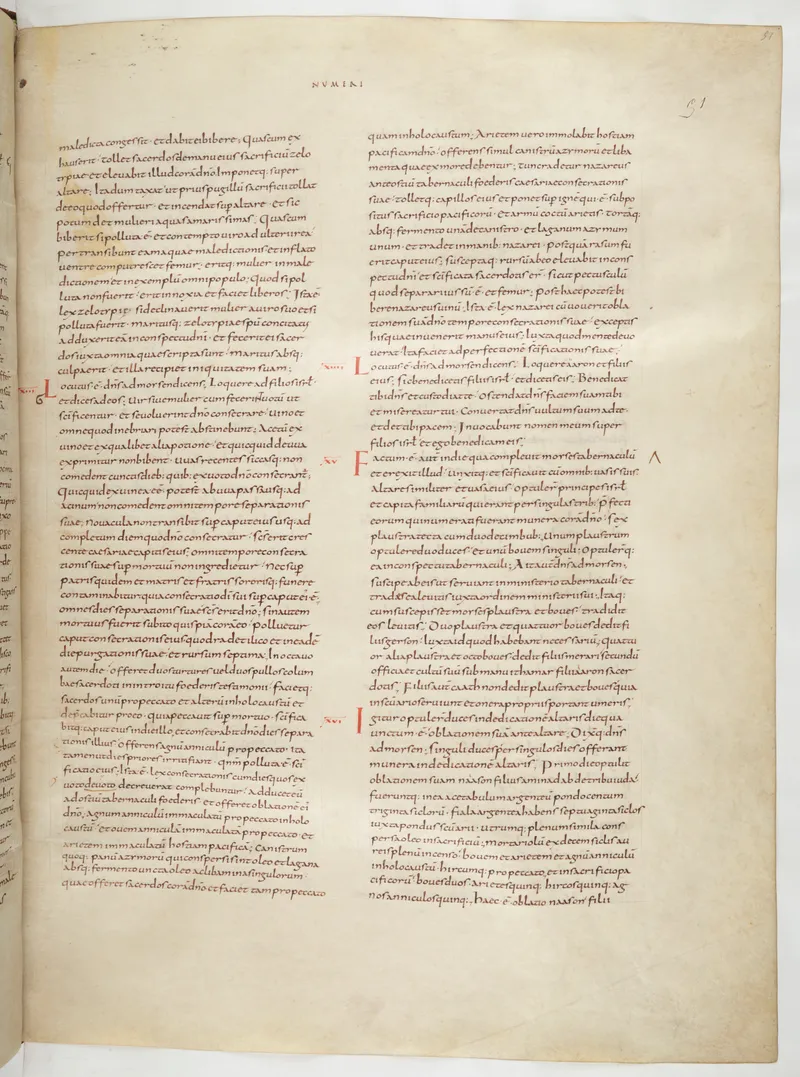 NUMERI
31
maledicta congessit· et dabit ei bibere; Quas cum ex
hauserit· tollet sacerdos de manu eius sacrificiū zelo
typiae et eleuabit illud corā dn̄o· Imponetq; super
altare; Ita dumtaxat ut prius pugillū sacrificii tollat
de eo quod offertur· et incendat sup altare· et sic
potum det mulieri aquas amarissimas; Quas cum
biberit si polluta ē· et contempto uiro adulterii rea·
pertransibunt eam aquae maledictionis· et inflato
uentre computrescet femur; eritq; mulier in male
dictionem et in exemplū omni populo; Quod si pol
luta non fuerit· erit innoxia et faciet liberos; Ista ē
lex zelotypiae· si declinauerit mulier a uiro suo et si
polluta fuerit· maritusq; zelotypiae spū concitatus
adduxerit eā in conspectu dn̄i· et fecerit ei sacer
dos iuxta omnia quae scripta sunt· maritus absq;
culpa erit· et illa recipiet iniquitatem suam;
Locutus ē dn̄s ad mosen dicens; Loquere ad filios isrł·
et dices ad eos; Uir siue mulier cum fecerit uotū ut
scificentur· et se uoluerint dn̄o consecrare· uino et
omne quod inebriari potest abstinebunt; Acetū ex
uino et ex qualibet alia potione· et quicquid de uua
exprimitur non bibent· uuas recentes siccasq; non
comedent cunctis dieb; quib; ex uoto dn̄o consecrant̄;
Quicquid ex uinea eē potest· ab uua passa usq; ad
acinum non comedent omni tempore separationis
suae; Nouacula non transibit sup caput eius usq; ad
completum diem quo dn̄o consecratur· scs erit cres
cente caesarie capitis eius; omni tempore consecra
tionis suae sup mortuū non ingredietur· Nec sup
patris quidem et matris et fratris sororisq; funere
contaminabitur quia consecratio dī sui sup caput ei· ē·
omnes dies separationis suae scs erit dn̄o; sin autem
mortuus fuerit subito quispiā corā eo· polluetur
caput consecrationis eius quod radet ilico et in eadē
die purgationis suae· et rursum septima; In octauo
autem die· offeret duos turtures uel duos pullos colum
bae sacerdoti in introitu foederis testamonii· facietq;
sacerdos unū pro peccato et alterū in holocaustū· et
deprecabitur pro eo· quia peccauit sup mortuo· scifica
bitq; caput eius in die illo et consecrabit dn̄o dies separa
tionis illius offerens agnū anniculū pro peccato· ita
tamen ut dies priores irriti fiant· qn̄m polluta ē sci
ficatio eius; Ista ē lex consecrationis cum dies quos ex
uoto decreuerat complebuntur· adducet eū
ad ostiū tabernaculi foederis· et offeret oblationē ei
dn̄o; Agnum anniculū immaculatū pro peccato in holo
caustū· et ouem anniculā immaculatā pro peccato· et
arietem immaculatū hostiam pacificā; Canistrum
quoq; panū azymorū qui conspersi sint oleo et lagana
absq; fermento uncta oleo ac libamina singulorum·
quae offeret sacerdos corā dn̄o et faciet tam pro peccato
quam in holocaustum; Arietem uero immolabit hostiam
pacificam dn̄o· offerens simul canistrū azymorū et liba
menta quae ex more debentur; tunc radetur nazareus
ante ostiū tabernaculi foederis caesarie consecrationis
suae· tolletq; capillos eius et ponet sup ignē qui ē supo
situs sacrificio pacificorū· et armū coctū arietis· tortāq;
absq; fermento unā de canistro· et laganum azymum
unum· et tradet in manib; nazarei· postquā rasum fu
erit caput eius; susceptaq; rursū ab eo eleuabit in cons
pectu dn̄i· et scificata sacerdotis er̄· sicut pectusculū
quod separari iussū ē· et femur; post haec potest bi
bere nazareus uinū; Ista ē lex nazarei cū uouerit obla
tionem suā dn̄o tempore consecrationis suae· exceptis
his quae inuenerit manus eius; iuxta quod mente deuo
uerat· Ita faciet ad perfectionē scificationis suae;
xiiii· Locutus ē dn̄s ad mosen dicens; Loquere aaron et filiis
eius; sic benedicetis filiis isrł· et dicetis eis; Benedicat
tibi dn̄s· et custodiat te· Ostendat dn̄s faciem suam tibi
et misereatur tui· Conuertat dn̄s uultum suum ad te·
et det tibi pacem; Inuocabunt nomen meum super
filios isrł et ego benedicam eis;
xv· Factum ē· aut̄ in die qua compleuit moses tabernaculū
et erexit illud· unxitq; et scificauit cū omnib; uasis suis·
altare similiter et uasa eius· optulerꝫ principes isrł·
et capita familiarū qui erant per singulas trib; pfecti
eorum qui numerati fuerant munera corā dn̄o· sex
plaustra tecta cum duodecim bub; Unum plaustrum
optulere duo duces· et unū bouem singuli; Optulerꝫ
ea in conspectu tabernaculi; Ait aut̄ dn̄s ad mosen;
suscipe ab eis ut seruiant in ministerio tabernaculi· et
trades ea leuitis iuxta ordinem ministerii sui; Itaq;
cum suscepisset moses plaustra et boues· tradidit
eos leuitis; Duo plaustra et quattuor boues dedit fi
liis gerson· iuxta id quod habebant necessariū; quattu
or alia plaustra et octo boues dedit filiis merari secundū
officia et cultū suū sub manu ithamar filii aaron sacer
dotis; Filiis aut̄ caath non dedit plaustra et boues quia
in sc̄uario seruiunt et onera propriis portant umeris;
xvi· Igitur optuler̄ duces in dedicatione altaris die qua
unctum ē· oblationem suā ante altare; Dixitq; dn̄s
ad mosen; singuli duces per singulos dies offerant
munera in dedicationē altaris; Primo die optulit
oblationem suam naason filius aminadab de tribu iuda·
fueruntq; in ea acetabulum argenteū pondo centum
triginta siclorū; fiala argentea habens septuaginta siclos
iuxta pondus scūarii· utrumq; plenum simila cons
persa oleo in sacrificiū; mortariolū ex decem siclis au
reis plenū incenso· bouem et arietem et agnū anniculū
in holocaustū· hircumq; pro peccato; et in sacrificio pa
cificorū boues duos· arietes quinq; hircos quinq; ag
nos anniculos quinq;· Haec ē· oblatio naason filii